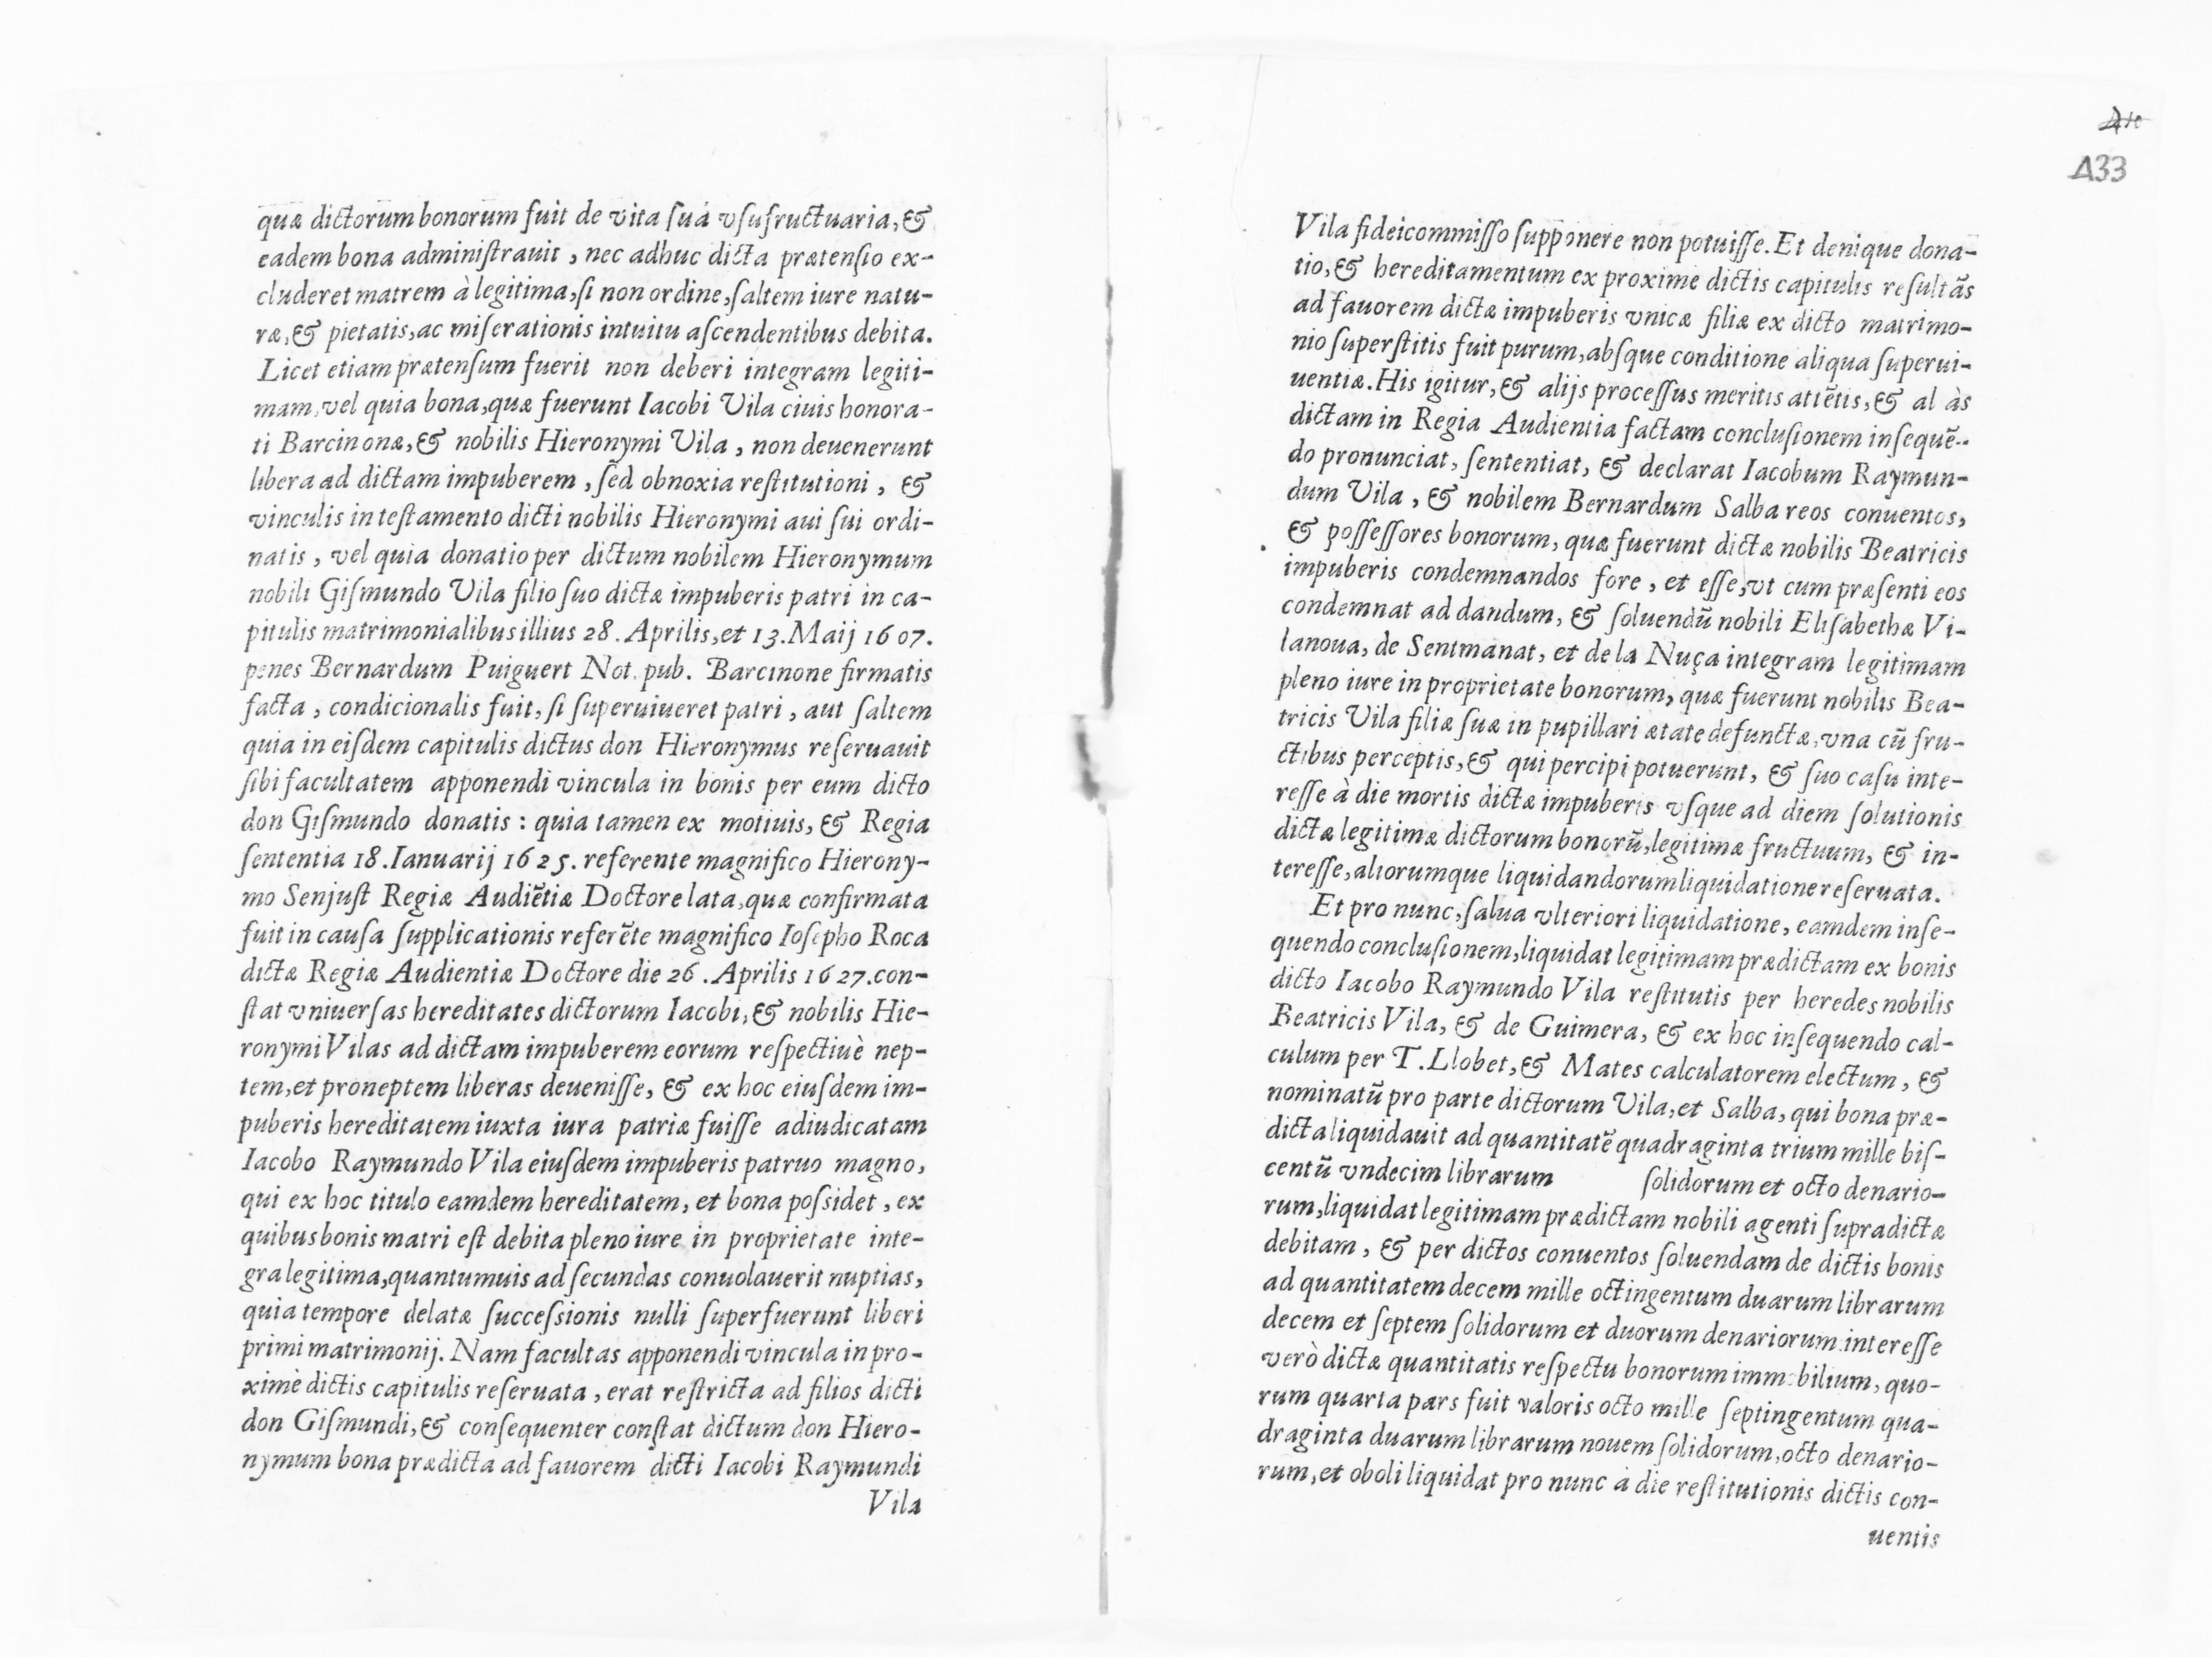 quæ dictorum bonorum fuit de vita ſuà vſufructuaria, &
eadem bona adminiſtrauit, nec adhuc dicta prætenſio ex-
cluderet matrem à legitima, ſi non ordine, ſaltem iure natu-
ræ, & pietatis, ac miſerationis intuitu aſcendentibus debita.
Licet etiam prætenſum fuerit non deberi integram legiti-
mam, vel quia bona, quæ fuerunt Iacobi Vila ciuis honora-
ti Barcinonæ, & nobilis Hieronymi Vila, non deuenerunt
libera ad dictam impuberem, ſed obnoxia reſtitutioni, &
vinculis in teſtamento dicti nobilis Hieronymi aui ſui ordi-
natis, vel quia donatio per dictum nobilem Hieronymum
nobili Giſmundo Vila filio ſuo dictæ impuberis patri in ca-
pitulis matrimonialibus illius 28. Aprilis, et 13. Maij 1607.
penes Bernardum Puiguert Not. pub. Barcinone firmatis
facta, condicionalis fuit, ſi ſuperuiueret patri, aut ſaltem
quia in eiſdem capitulis dictus don Hieronymus reſeruauit
ſibi facultatem apponendi vincula in bonis per eum dicto
don Giſmundo donatis: quia tamen ex motiuis, & Regia
ſententia 18. Ianuarij 1625. referente magnifico Hierony-
mo Senjuſt Regiæ Audiẽtiæ Doctore lata, quæ confirmata
fuit in cauſa ſupplicationis referẽte magnifico Ioſepho Roca
dictæ Regiæ Audientiæ Doctore die 26. Aprilis 1627. con-
ſtat vniuerſas hereditates dictorum Iacobi, & nobilis Hie-
ronymi Vilas ad dictam impuberem eorum reſpectiuè nep-
tem, et proneptem liberas deueniſſe, & ex hoc eiuſdem im-
puberis hereditatem iuxta iura patriæ fuiſſe adiudicatam
Iacobo Raymundo Vila eiuſdem impuberis patruo magno,
qui ex hoc titulo eamdem hereditatem, et bona poſsidet, ex
quibus bonis matri eſt debita pleno iure in proprietate inte-
gra legitima, quantumuis ad ſecundas conuolauerit nuptias,
quia tempore delatæ ſucceſsionis nulli ſuperfuerunt liberi
primi matrimonij. Nam facultas apponendi vincula in pro-
ximè dictis capitulis reſeruata, erat reſtricta ad filios dicti
don Giſmundi, & conſequenter conſtat dictum don Hiero-
nymum bona prædicta ad fauorem dicti Iacobi Raymundi
Vila
133
Vila fideicommiſſo ſupponere non potuiſſe. Et denique dona-
tio, & hereditamentum ex proxime dictis capitulis reſultãs
ad fauorem dictæ impuberis vnicæ filiæ ex dicto matrimo-
nio ſuperſtitis fuit purum, abſque conditione aliqua ſuperui-
uentiæ. His igitur, & alijs proceſſus meritis attẽtis, & al às
dictam in Regia Audientia factam concluſionem inſequẽ-
do pronunciat, ſententiat, & declarat Iacobum Raymun-
dum Vila, & nobilem Bernardum Salba reos conuentos,
& poſſeſſores bonorum, quæ fuerunt dictæ nobilis Beatricis
impuberis condemnandos fore, et eſſe, vt cum præſenti eos
condemnat ad dandum, & ſoluendũ nobili Eliſabethæ Vi-
lanoua, de Sentmanat, et de la Nuça integram legitimam
pleno iure in proprietate bonorum, quæ fuerunt nobilis Bea-
tricis Vila filiæ ſuæ in pupillari ætate defunctæ, vna cũ fru-
ctibus perceptis, & qui percipi potuerunt, & ſuo caſu inte-
reſſe à die mortis dictæ impuberis vſque ad diem ſolutionis
dictæ legitimæ dictorum bonorũ, legitimæ fructuum, & in-
tereſſe, aliorumque liquidandorum liquidatione reſeruata.
Et pro nunc, ſalua vlteriori liquidatione, eamdem inſe-
quendo concluſionem, liquidat legitimam prædictam ex bonis
dicto Iacobo Raymundo Vila reſtitutis per heredes nobilis
Beatricis Vila, & de Guimera, & ex hoc inſequendo cal-
culum per T. Llobet, & Mates calculatorem electum, &
nominatũ pro parte dictorum Vila, et Salba, qui bona præ-
dicta liquidauit ad quantitatẽ quadraginta trium mille biſ-
centũ vndecim librarum ſolidorum et octo denario-
rum, liquidat legitimam prædictam nobili agenti ſupradictæ
debitam, & per dictos conuentos ſoluendam de dictis bonis
ad quantitatem decem mille octingentum duarum librarum
decem et ſeptem ſolidorum et duorum denariorum intereſſe
verò dictæ quantitatis reſpectu bonorum immobilium, quo-
rum quarta pars fuit valoris octo mille ſeptingentum qua-
draginta duarum librarum nouem ſolidorum, octo denario-
rum, et oboli liquidat pro nunc à die reſtitutionis dictis con-
uentis